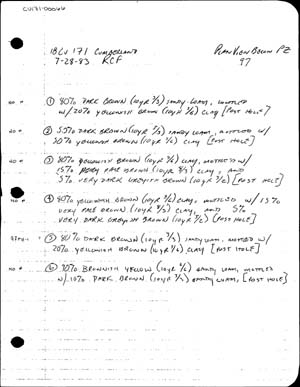 CU171-00066
18CU 171 CUMBERLAND PLAN VIEW BELOW PZ
7-28-83 RCF 97
NO # ① 80% DARK BROWN (10YR 3/3) SANDY LOAM, MOTTLED
w/ 20% YELLOWISH BROWN CLAY [POST HOLE]
NO # ② DARK BROWN (10YR 3/3) SANDY LOAM, MOTTLED w/
YELLOWISH BROWN CLAY [POST HOLE]
NO # ③ 80% YELLOWISH BROWN CLAY, MOTTLED w/
15% VERY PALE BROWN CLAY, AND
5% VERY DARK GRAYISH BROWN [POST HOLE]
NO # ④ 80% YELLOWISH BROWN CLAY, MOTTLED w/ 15%
VERY PALE BROWN CLAY, AND 5%
VERY DARK GRAYISH BROWN [POST HOLE]
⑤ 80% DARK BROWN (10YR 3/3) SANDY LOAM, MOTTLED w/
20% YELLOWISH BROWN CLAY [POST HOLE]
NO # ⑥ 90% BROWNISH YELLOW SANDY LOAM, MOTTLED
w/ 10% DARK BROWN (10YR 3/3) SANDY LOAM, [POST HOLE]